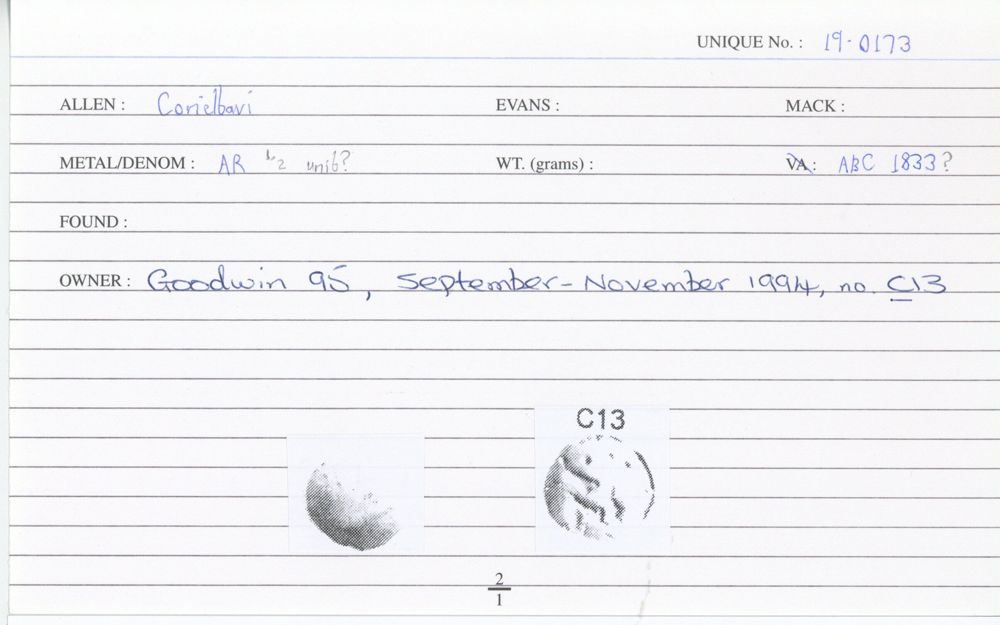 UNIQUE No. : 19-0173
ALLEN : Corieltavi EVANS : MACK :
METAL/DENOM : AR ½ unit? WT. (grams) : VA : ABC 1833?
FOUND :
OWNER : Goodwin 95, September-November 1994, no. C13
C13
2
1